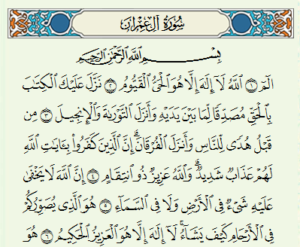 سُورَةُ آلِ عِمْرَان
بِسْمِ اللَّهِ الرَّحْمَٰنِ الرَّحِيمِ
الٓمٓ ١ اللَّهُ لَا إِلَٰهَ إِلَّا هُوَ الْحَيُّ الْقَيُّومُ ٢ نَزَّلَ عَلَيْكَ الْكِتَٰبَ
بِالْحَقِّ مُصَدِّقًا لِّمَا بَيْنَ يَدَيْهِ وَأَنزَلَ التَّوْرَىٰةَ وَالْإِنجِيلَ ٣ مِن
قَبْلُ هُدًى لِّلنَّاسِ وَأَنزَلَ الْفُرْقَانَ إِنَّ الَّذِينَ كَفَرُوا بِـَٔايَٰتِ اللَّهِ
لَهُمْ عَذَابٌ شَدِيدٌ وَاللَّهُ عَزِيزٌ ذُو انتِقَامٍ ٤ إِنَّ اللَّهَ لَا يَخْفَىٰ
عَلَيْهِ شَىْءٌ فِى الْأَرْضِ وَلَا فِى السَّمَاءِ ٥ هُوَ الَّذِى يُصَوِّرُكُمْ
فِى الْأَرْحَامِ كَيْفَ يَشَاءُ لَا إِلَٰهَ إِلَّا هُوَ الْعَزِيزُ الْحَكِيمُ ٦ هُوَ